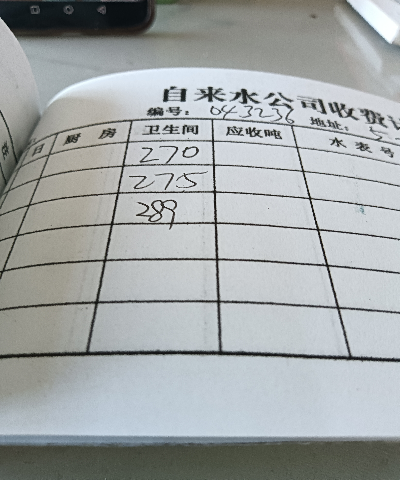 自来水公司收费
编号: 043236 地址: 5
日 厨房 卫生间 应收吨 水表号
270
275
289